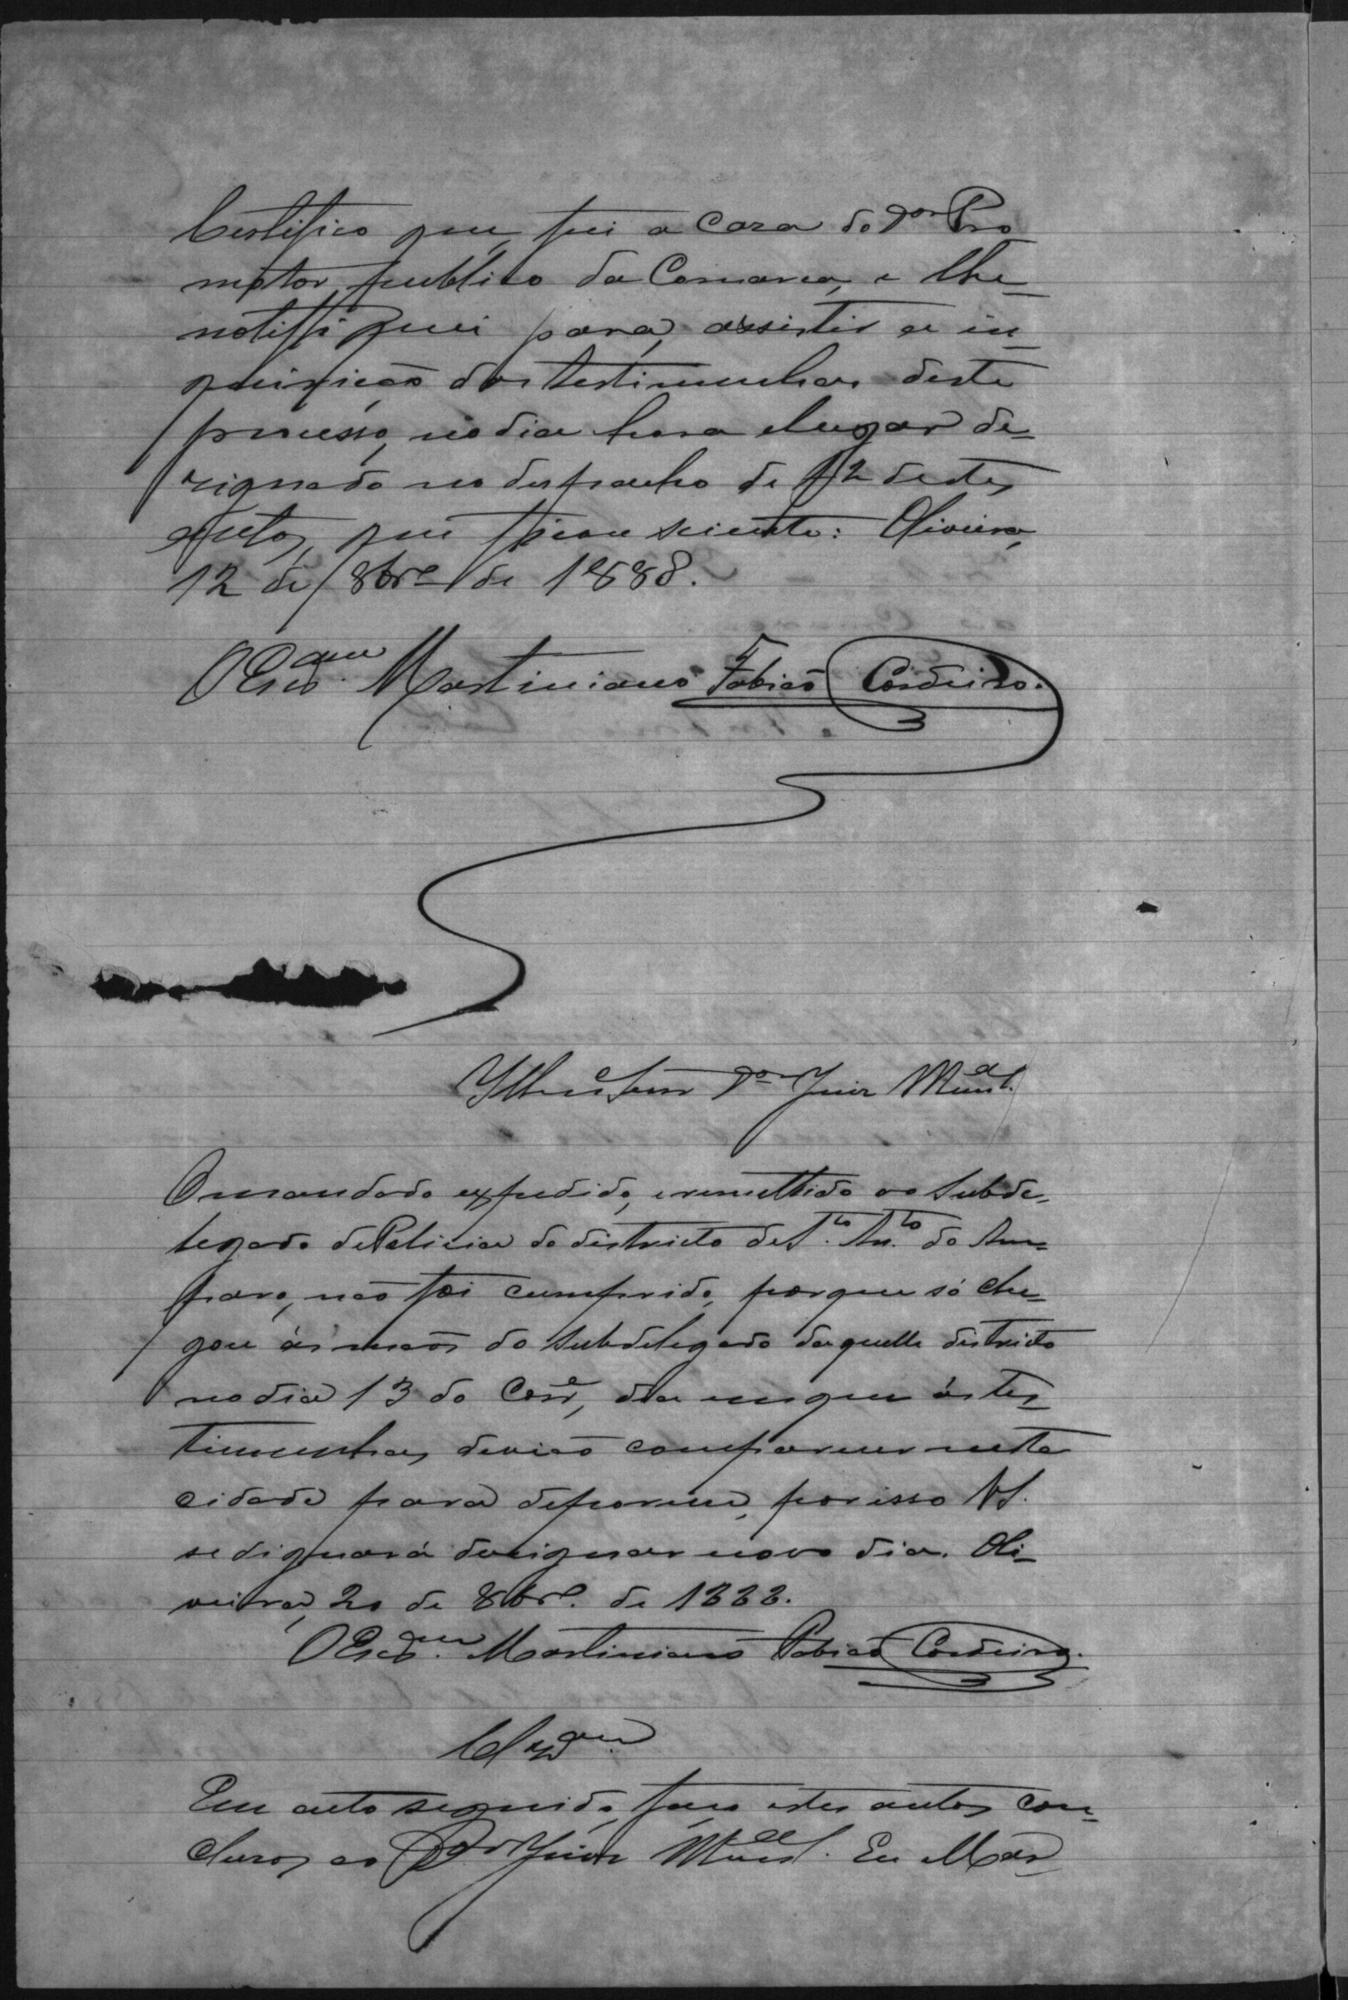 Certifico que fui a caza do Dor Pro
motor publico da Comarca, e lhe
notiffiquei para assistir a in-
quirição das testimunhas deste
processo, no dia hora e lugar de-
zignado no despacho de f 2 destes
autos, que ficou sciente: Oliveira,
12 de 8bre de 1888.
O Escam. Martiniano Fabião Cordeiro.
Illmo Senr Dor Juiz Munal.
O mandado expedido, e remettido ao Subde-
legado de Policia do districto de Sto. Anto. do Am-
paro, não foi cumprido, porque só che-
gou ás mãos do Subdelegado daquelle districto
no dia 13 do Corre, dia em que ás tes-
timunhas devião comparecer nesta
cidade para deporem, por isso VS.
se dignará dezignar novo dia. Oli-
veira, 20 de 8bro. de 1888.
O Escam. Martiniano Fabião Cordeiro.
Clzam.
Em acto seguido, faço estes autos con-
cluzos ao Dor Juiz Munal. Eu Mar